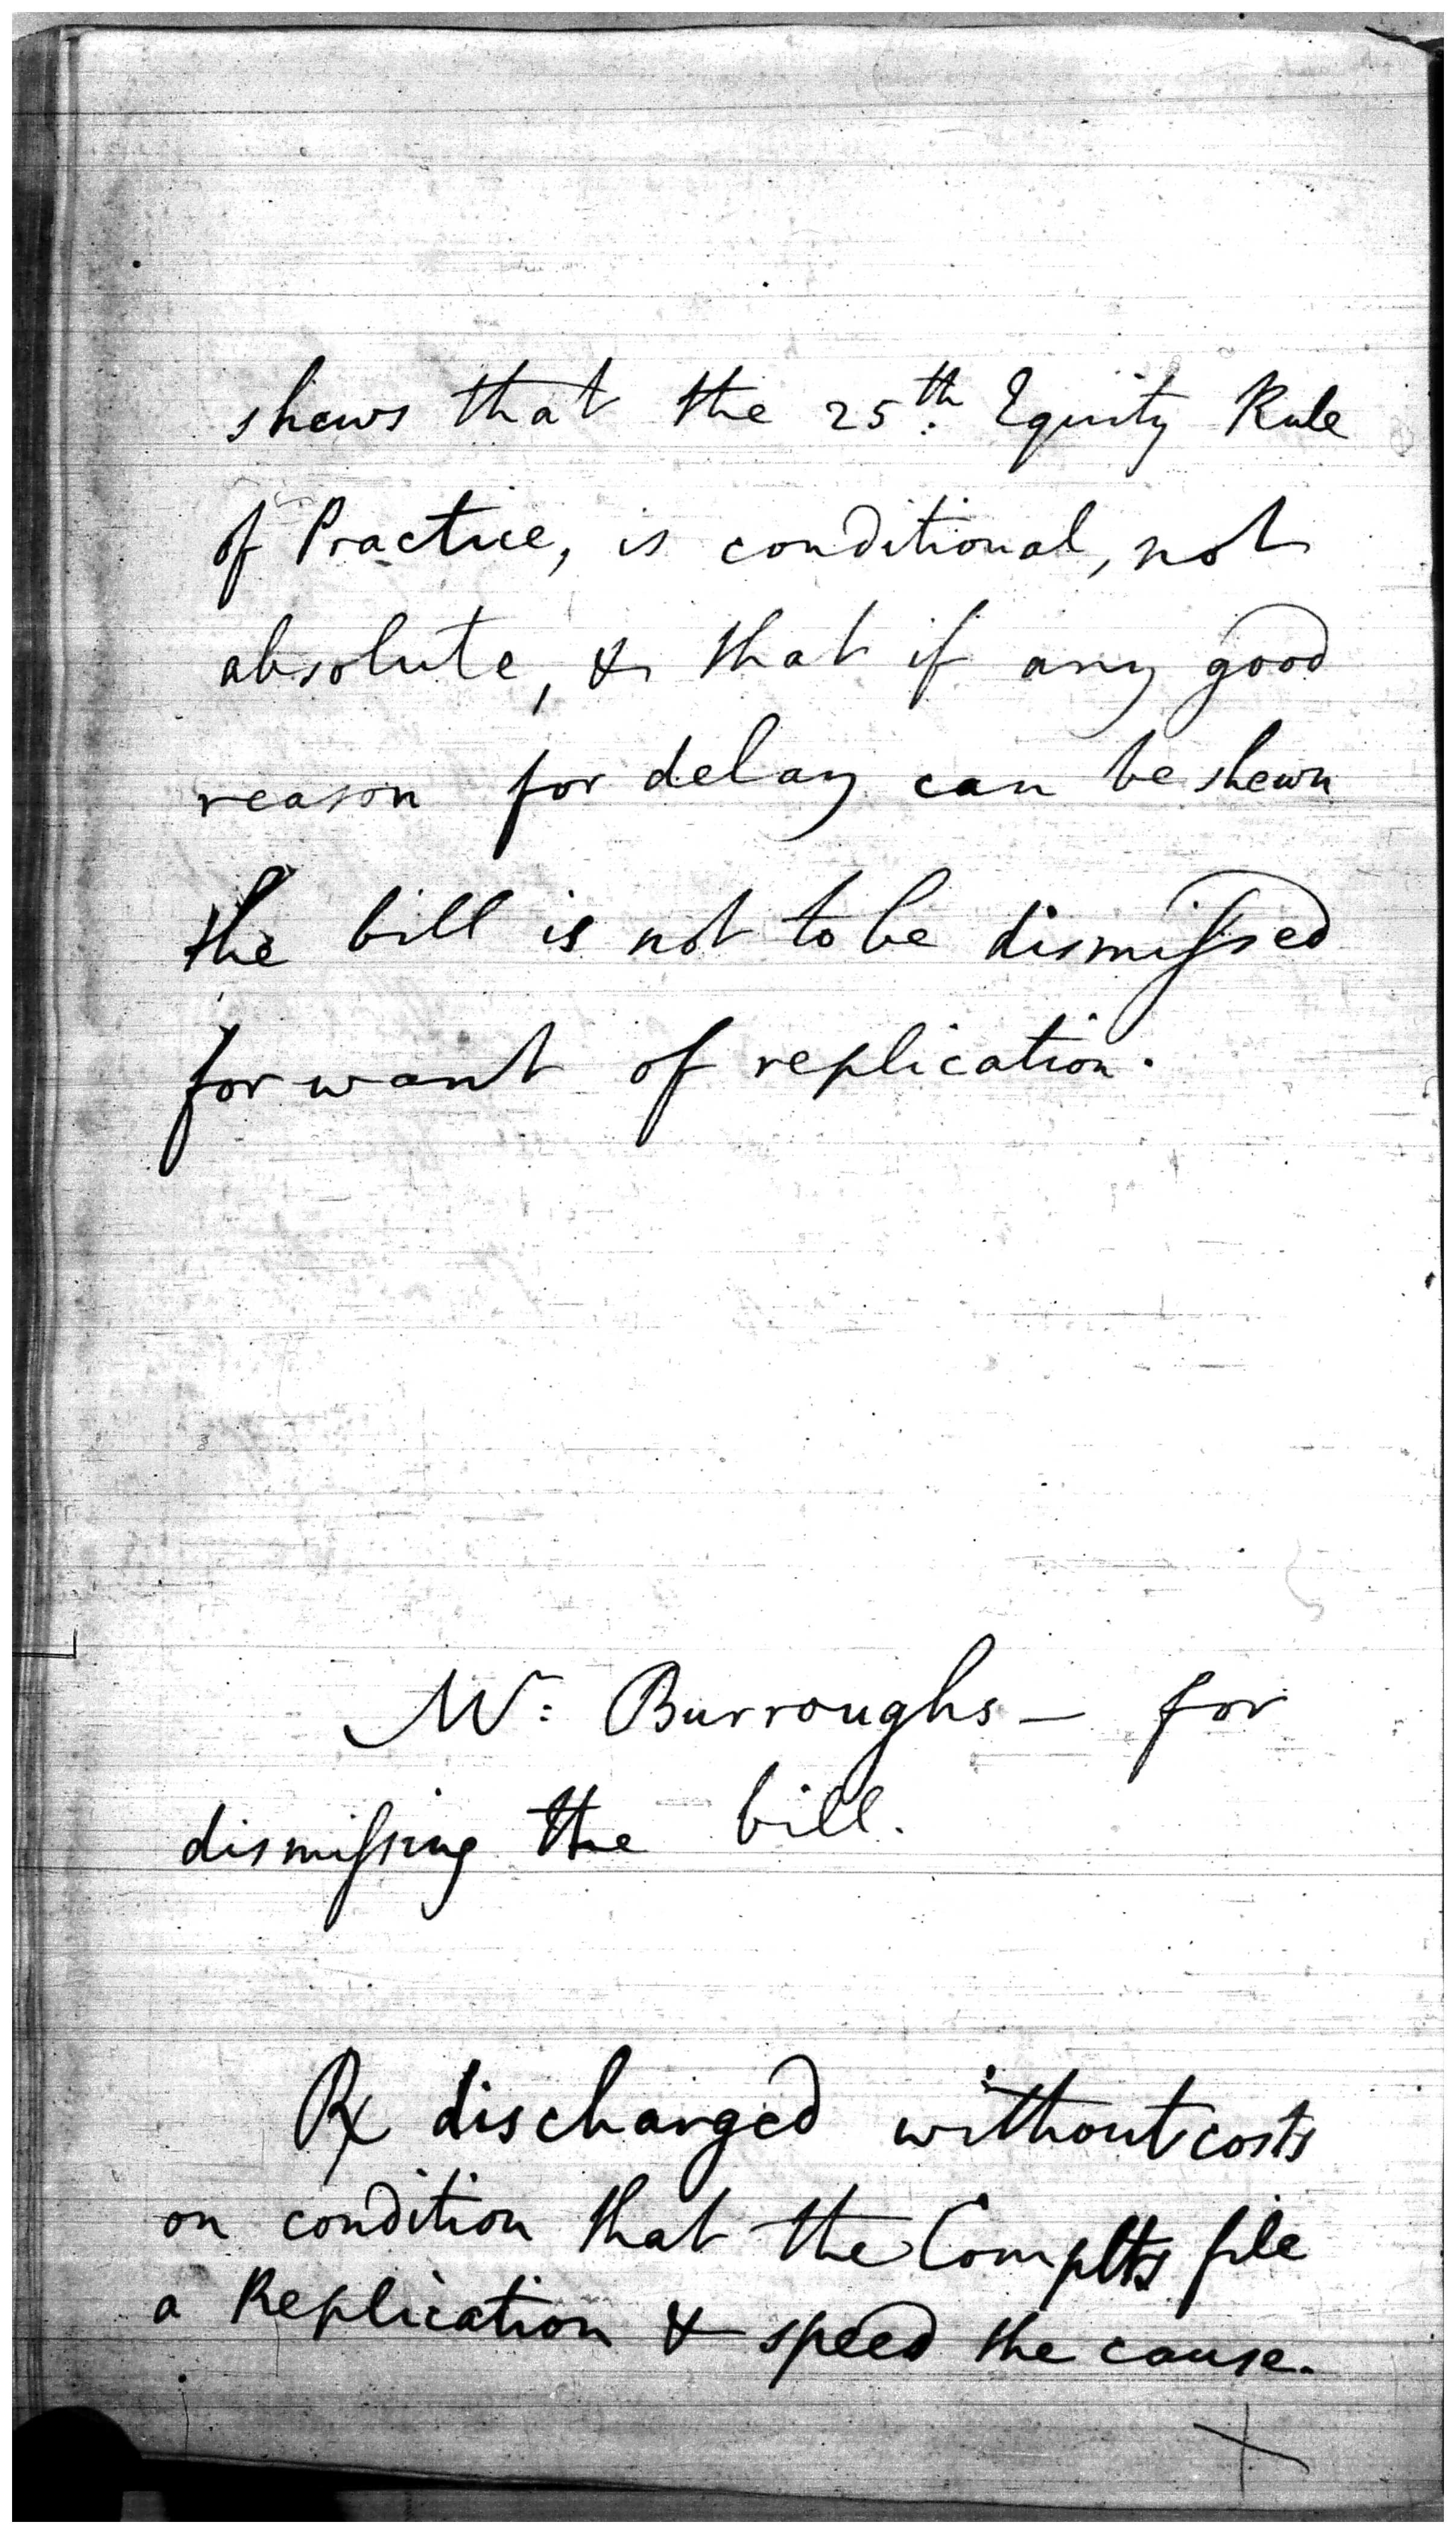 shews that the 25th. Equity Rule
of Practice, is conditional, not
absolute, & that if any good
reason for delay can be shewn
the bill is not to be dismissed
for want of replication.
Mr: Burroughs — for
dismissing the bill.
℞ discharged without costs
on condition that the Complts file
a Replication & speed the cause.